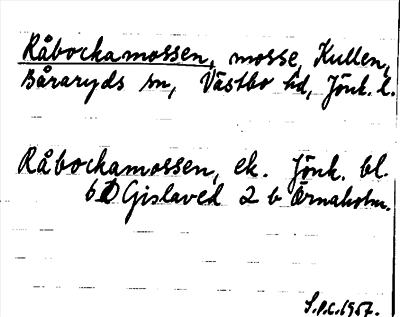 Råbockamossen, mosse, Kullen,
Båraryds sn, Västbo hd, Jönk. l.
Råbockamossen, ek. Jönk. bl.
6 D Gislaved 2 b Örnaholm.
S.P.C. 1957.